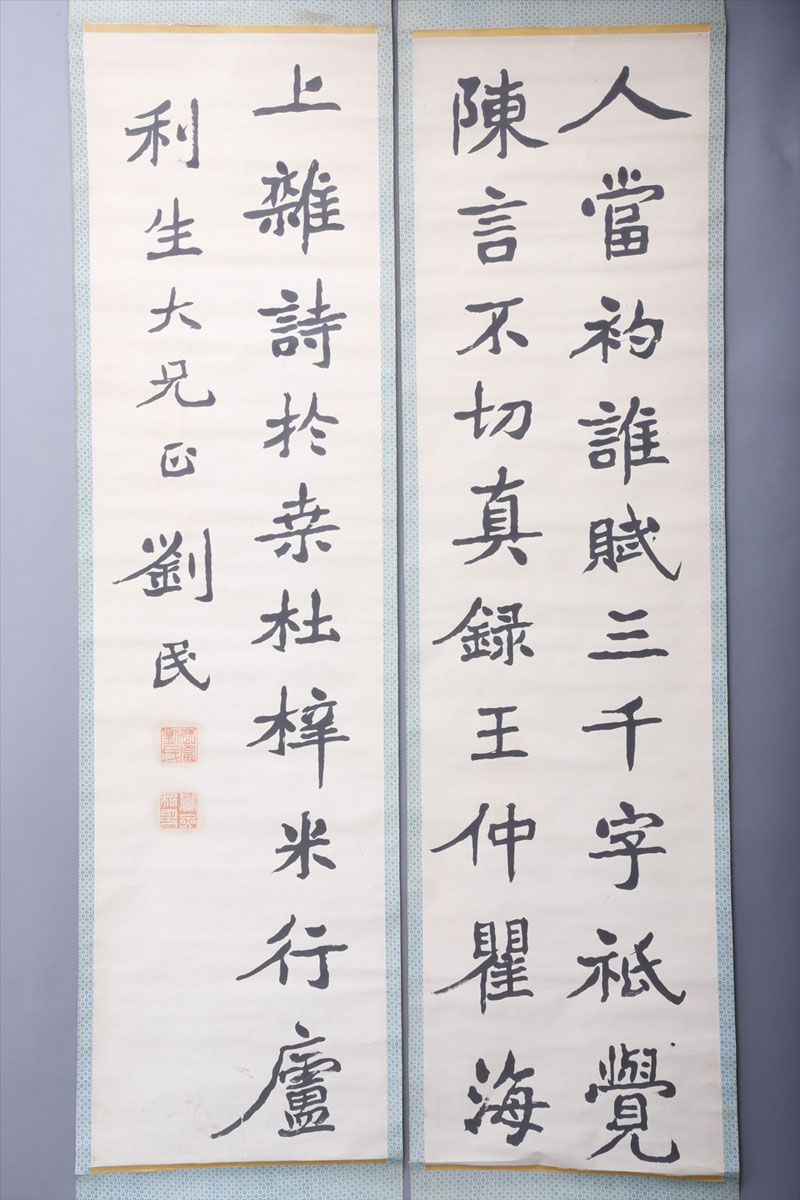 人當初誰賦三千字祗覺
陳言不切真録王仲瞿海
上雜詩於桒杜梓米行廬
利生大兄正劉民